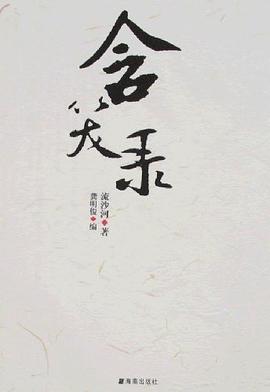 含
笑
录
流沙河·著
龚明俊·编
海南出版社